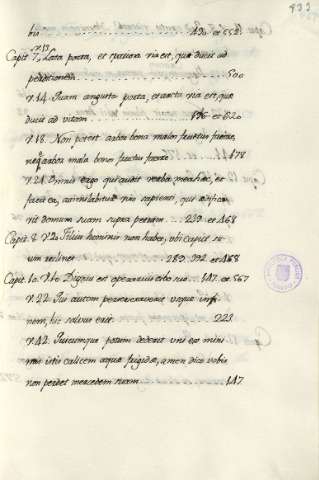 933
bis ........ 430. et 558.
Capit. 7. v. 13. Lata porta, et spatiosa via est, quæ ducit ad
perditionem ........ 500
v. 14. Quam angusta porta, et arcta via est, quæ
ducit ad vitam ........ 196 et 620
v. 18. Non potest arbor bona malos fructus facere,
neq. arbor mala bonos fructus facere ........ 478
v. 24. Omnis ergo qui audit verba mea hæc, et
facit ea, assimilabitur viro sapienti, qui ædifica-
vit domum suam supra petram ........ 239 et 468
Capit. 8. v. 20. Filius hominis non habet, ubi caput su-
um reclinet ........ 289. 392 et 468
Capit. 10. v. 10. Dignus est operarius cibo suo ... 147. et 567
v. 22. Qui autem perseveraverit usque in fi-
nem, hic salvus erit ........ 223
v. 42. Quicumque potum dederit uni ex mini-
mis istis calicem aquæ frigidæ, amen dico vobis
non perdet mercedem suam ........ 147